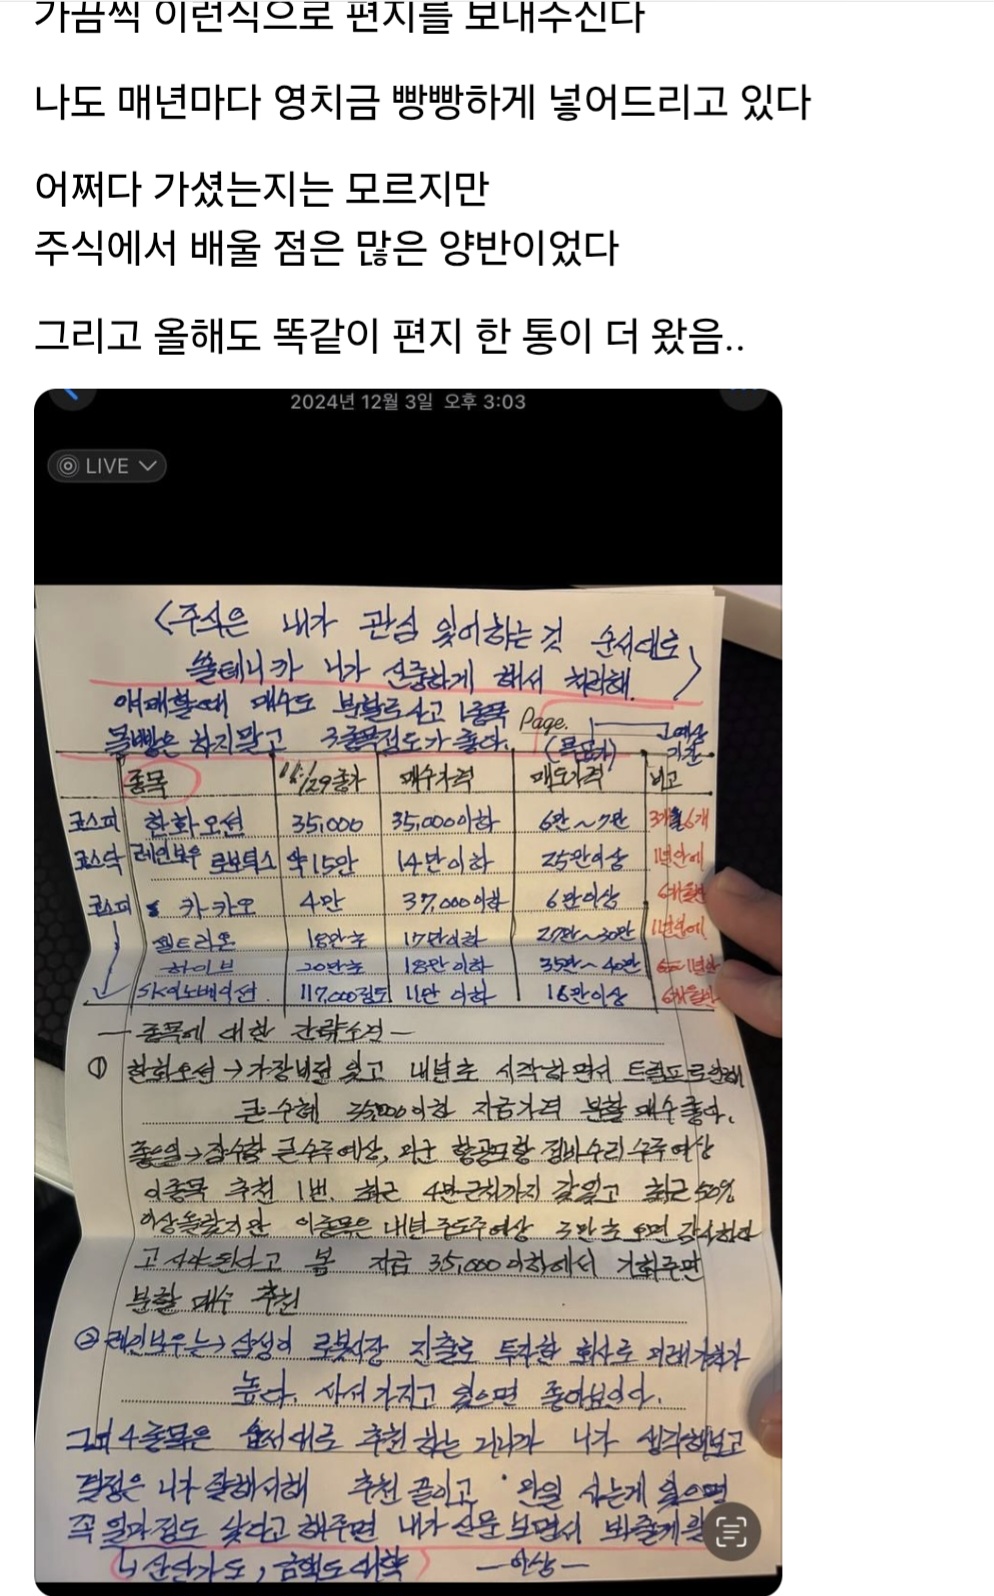 가끔씩 이런식으로 편지를 보내주신다
나도 매년마다 영치금 빵빵하게 넣어드리고 있다
어쩌다 가셨는지는 모르지만
주식에서 배울 점은 많은 양반이었다
그리고 올해도 똑같이 편지 한 통이 더 왔음..
2024년 12월 3일 오후 3:03
LIVE
<주식은 내가 관심 있어하는것 순서대로
쓸테니까 니가 신중하게 해서 처리해>
매매할때 매수도 분할로 사고 1종목 Page.
몰빵은 하지말고 3종목정도가 좋다. (목표가) 예상 기간
종목 11/29종가 매수가격 매도가격 비고
코스피 한화오션 35,000 35,000이하 6만~7만 3개월 6개
코스닥 레인보우 로보틱스 약 15만 14만이하 25만이상 1년안에
코스피 카카오 4만 37,000이하 6만이상 6개월안
셀트리온 18만초 17만이하 27만~30만 1년안에
하이브 20만초 18만이하 35만~40만 1년안
SK이노베이션. 117,000정도 11만 이하 16만이상 6개월안
— 종목에 대한 간략소견 —
① 한화오션 → 가장비전 있고 내년초 시작하면서 트럼프로인해
큰수혜 35,000이하 지금가격 분할 매수좋다.
좋은일→잠수함 큰수주예상, 미군 항공모함 정비수리 수주예상
이종목 추천 1번. 최근 4만근처까지 갔었고 최근 50%
이상올랐지만 이종목은 내년 주도주예상 3만초 오면 감사하다
고 사야된다고 봄 지금 35,000이하에서 기회주면
분할 매수 추천
② 레인보우는→ 삼성이 로봇시장 진출로 투자한 회사로 미래가치가
높다. 사서 가지고 있으면 좋아보인다.
그외 4종목은 순서대로 추천하는거니까 니가 생각해보고
결정은 니가 잘해서해 추천 끝이고 만일 사는게 있으면
꼭 얼마정도 샀다고 해주면 내가 신문 보면서 봐줄게
산단가도, 금액도 대략 —이상—